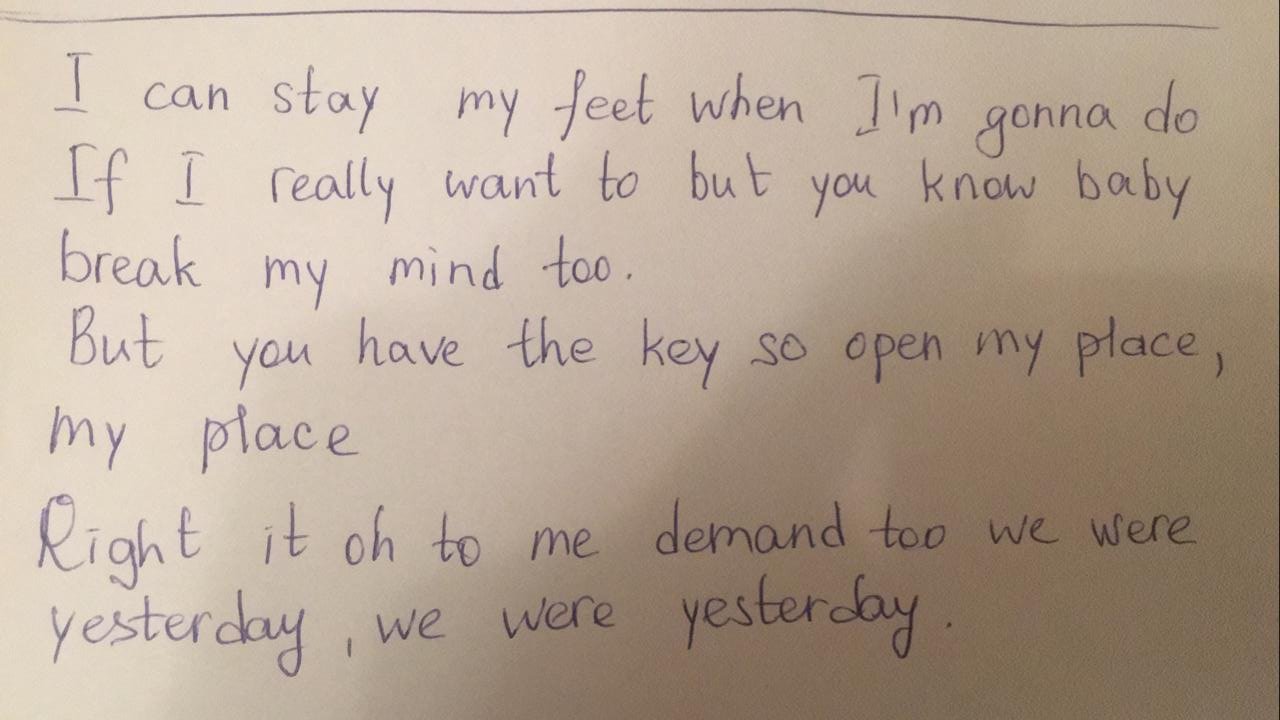 I can stay my feet when I'm gonna do
If I really want to but you know baby
break my mind too.
But you have the key so open my place,
my place
Right it oh to me demand too we were
yesterday, we were yesterday.